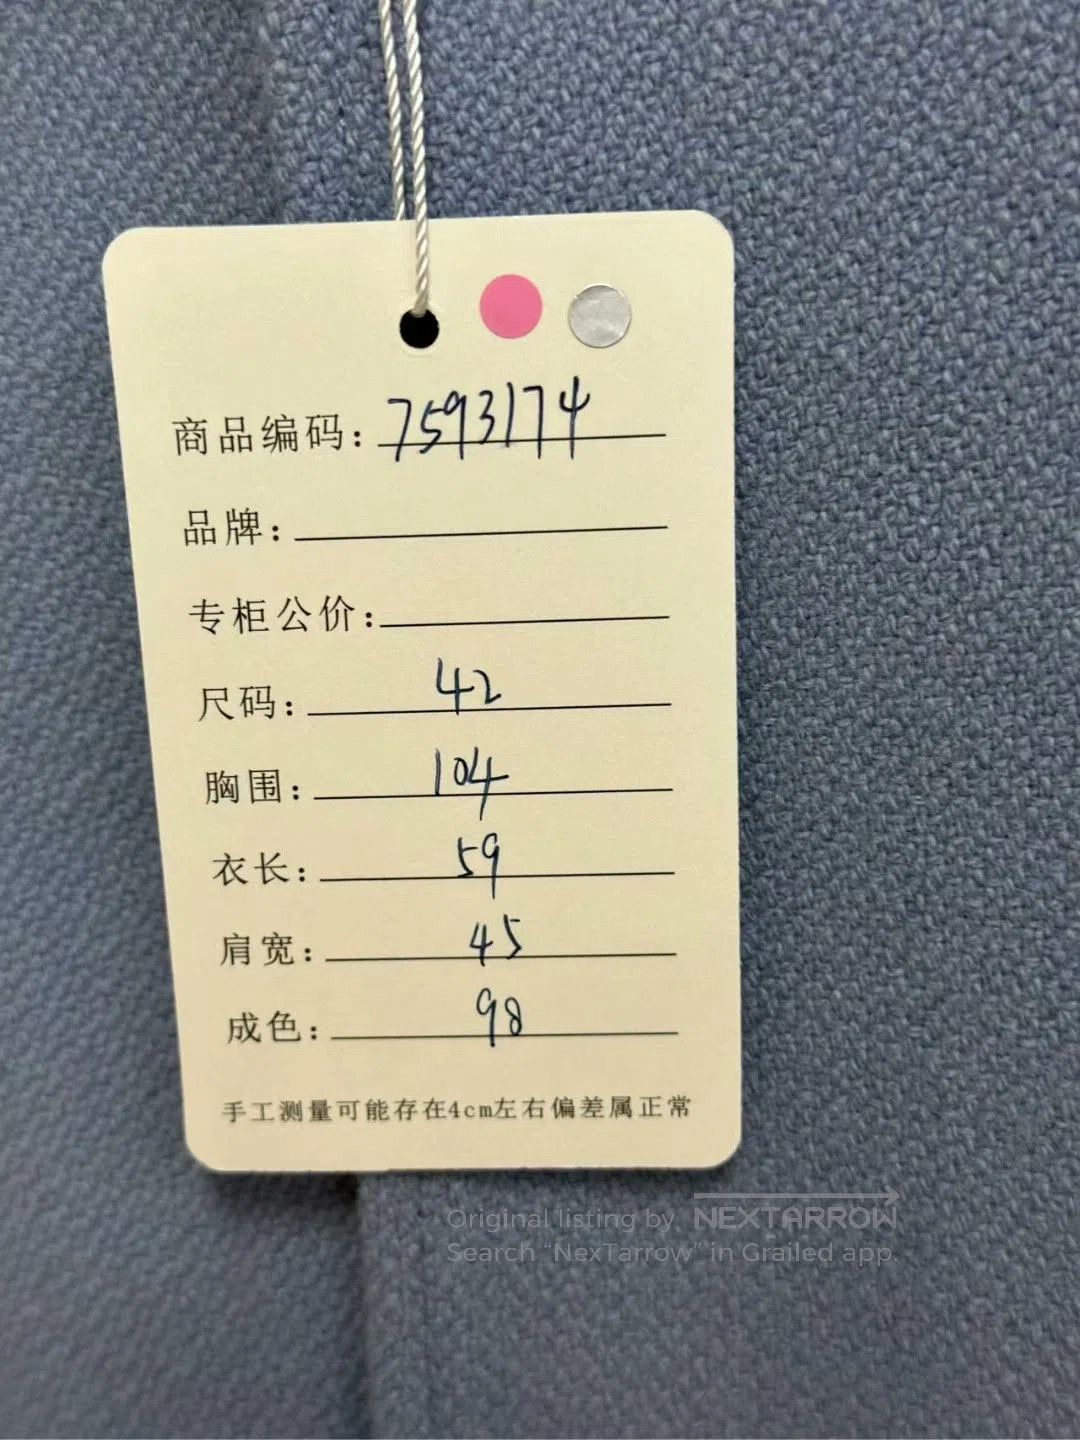 商品编码：7593174
品牌：
专柜公价：
尺码：42
胸围：104
衣长：59
肩宽：45
成色：98
手工测量可能存在4cm左右偏差属正常
Original listing by NEXTARROW
Search “NexTarrow” in Grailed app.